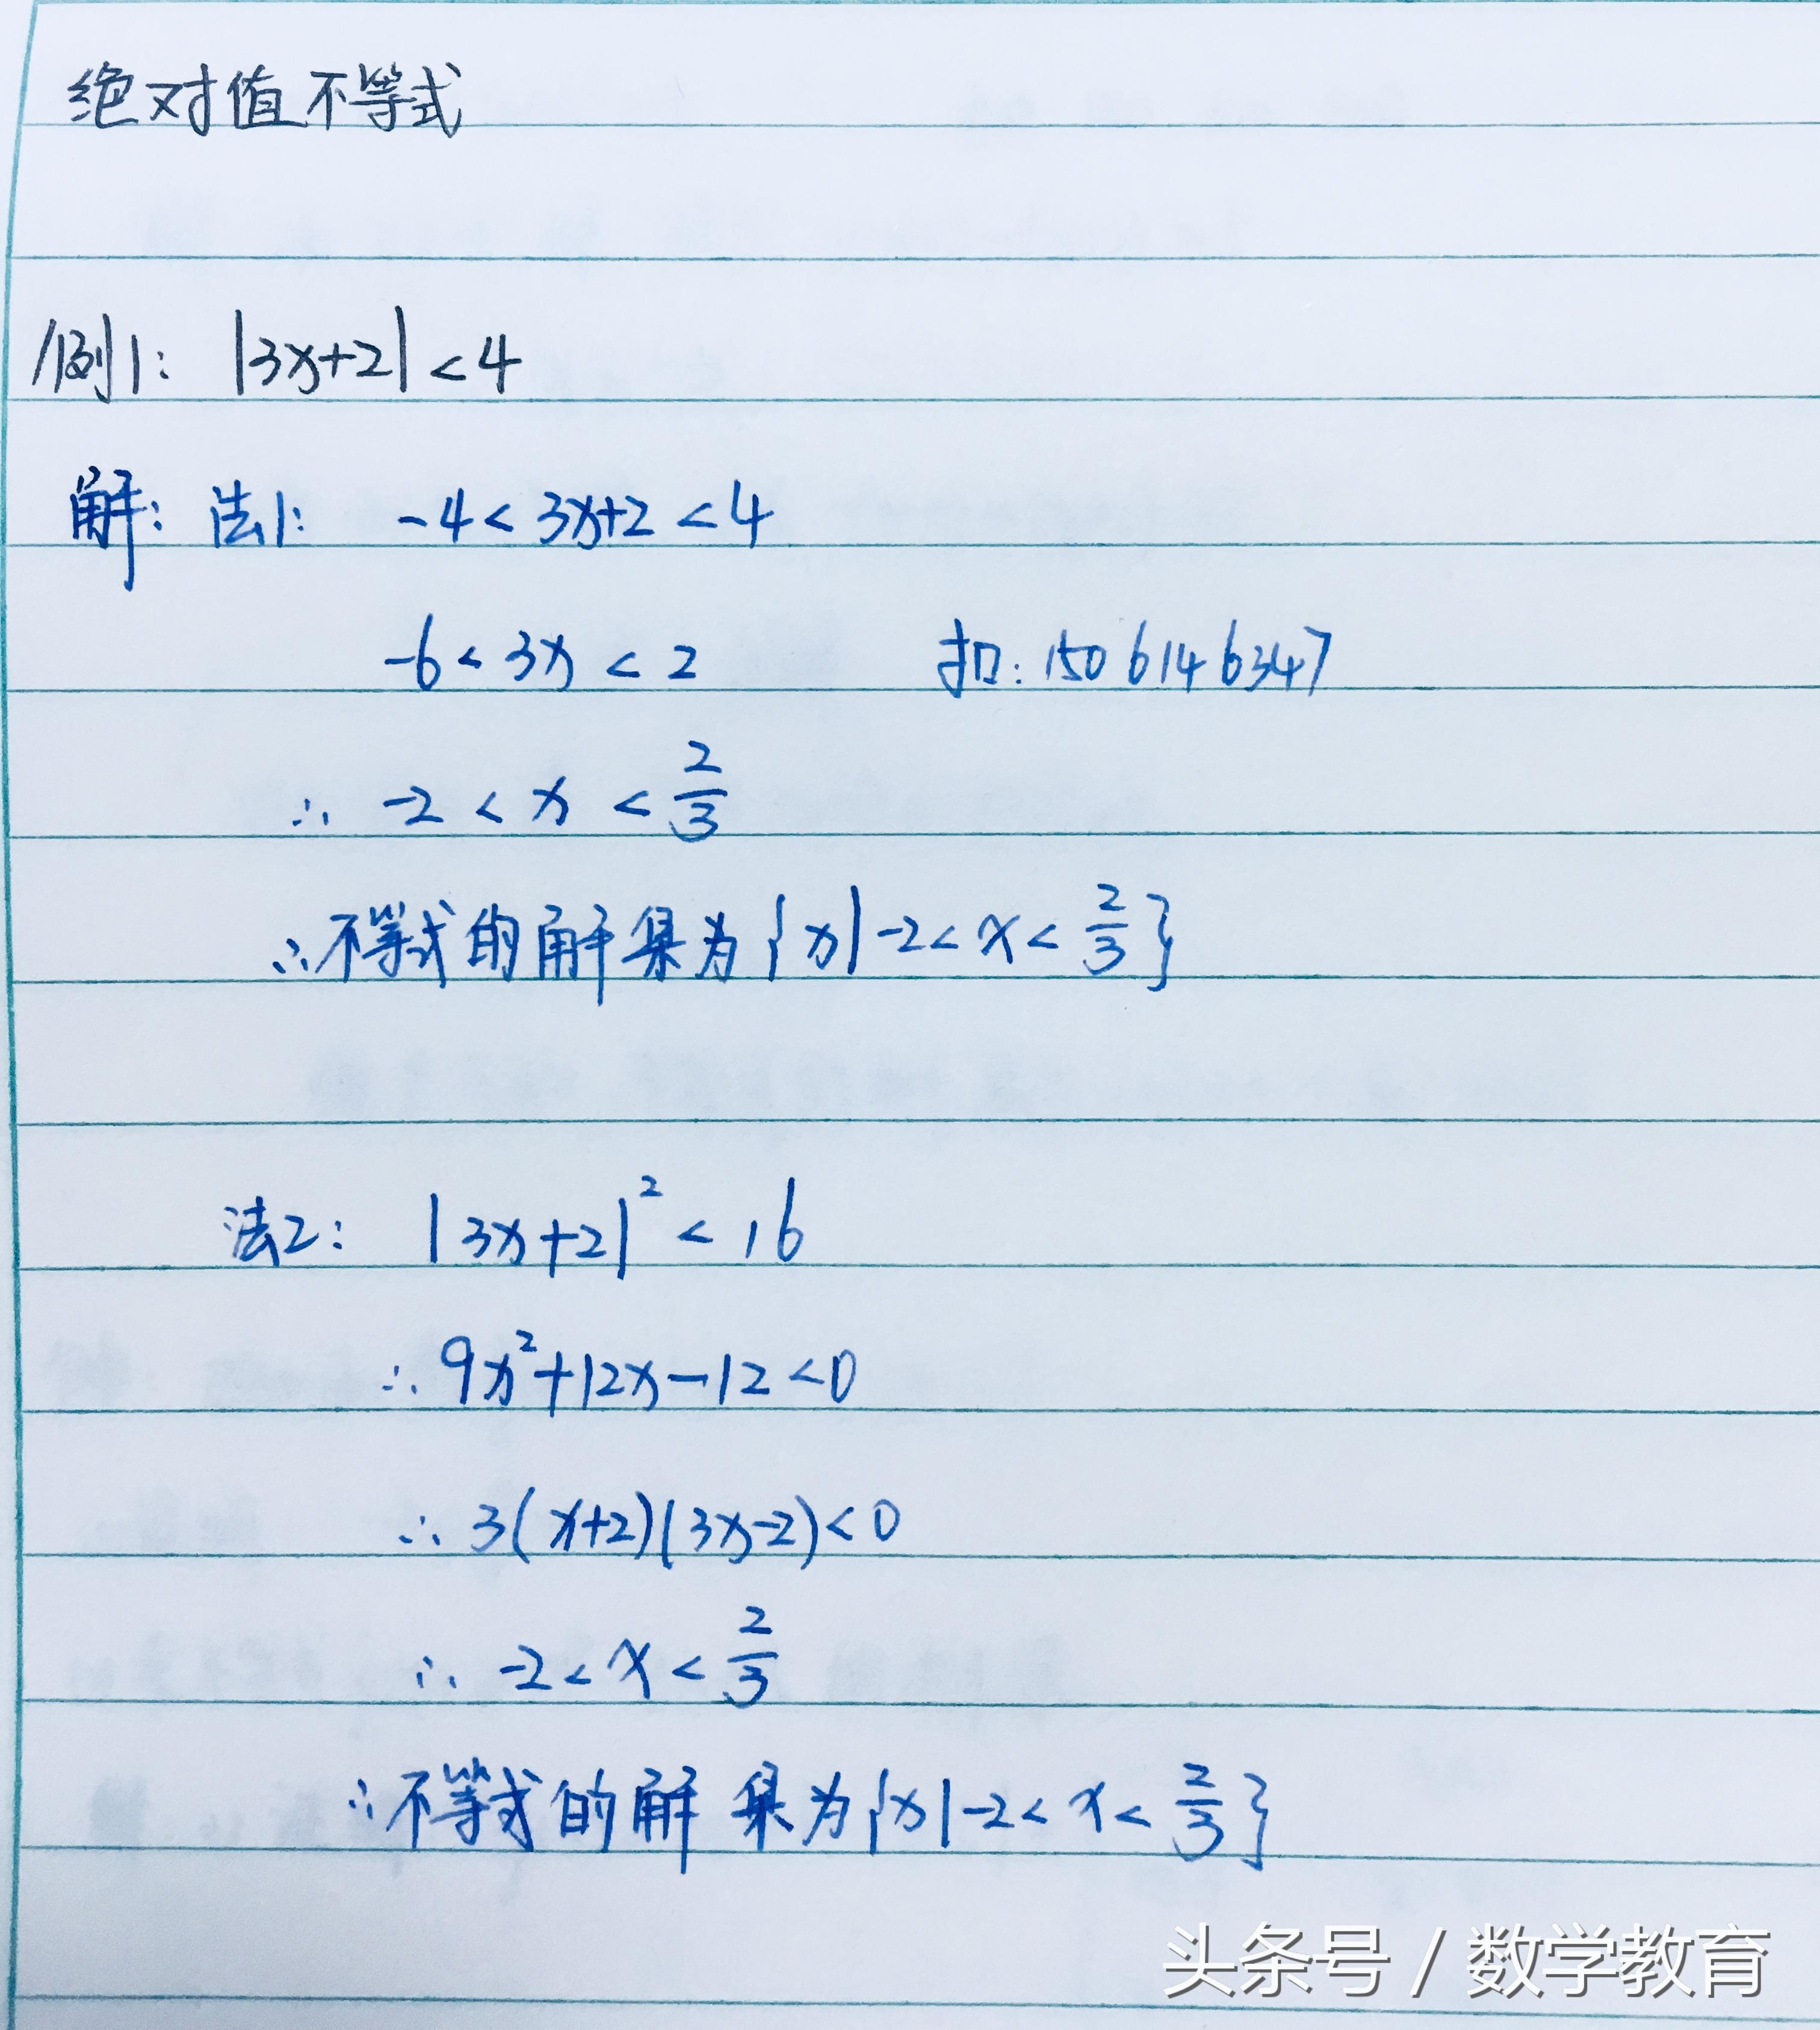 绝对值不等式
例1: |3x+2|<4
解: 法1: -4<3x+2<4
-6<3x<2 扣: 1506146347
∴ -2<x<2/3
∴不等式的解集为{x|-2<x<2/3}
法2: |3x+2|²<16
∴ 9x²+12x-12<0
∴ 3(x+2)(3x-2)<0
∴ -2<x<2/3
∴不等式的解集为{x|-2<x<2/3}
头条号 / 数学教育